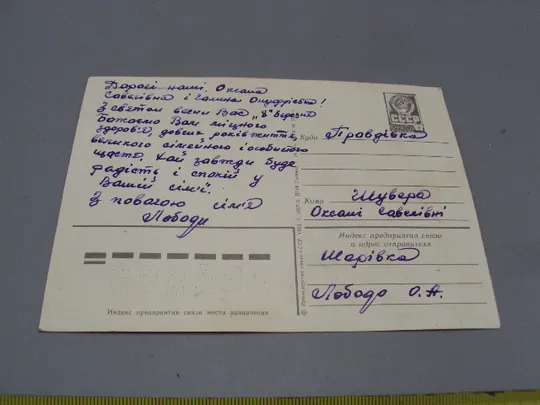 Дорогі наші, Оксано
Савеліївна і Галина Онуфріївно!
З святом весни Вас „8" березня
Бажаємо Вам міцного
здоров'я, довгих років життя,
великого сімейного і особистого
щастя. Хай завжди буде
радість і спокій у
Вашій сім'ї.
З повагою сім'я
Лободи
СССР
Куда Правдівка
Кому Шувера
Оксані Савелівні
Индекс предприятия связи
и адрес отправителя
Шарівка
Лобода О. А.
Индекс предприятия связи места назначения